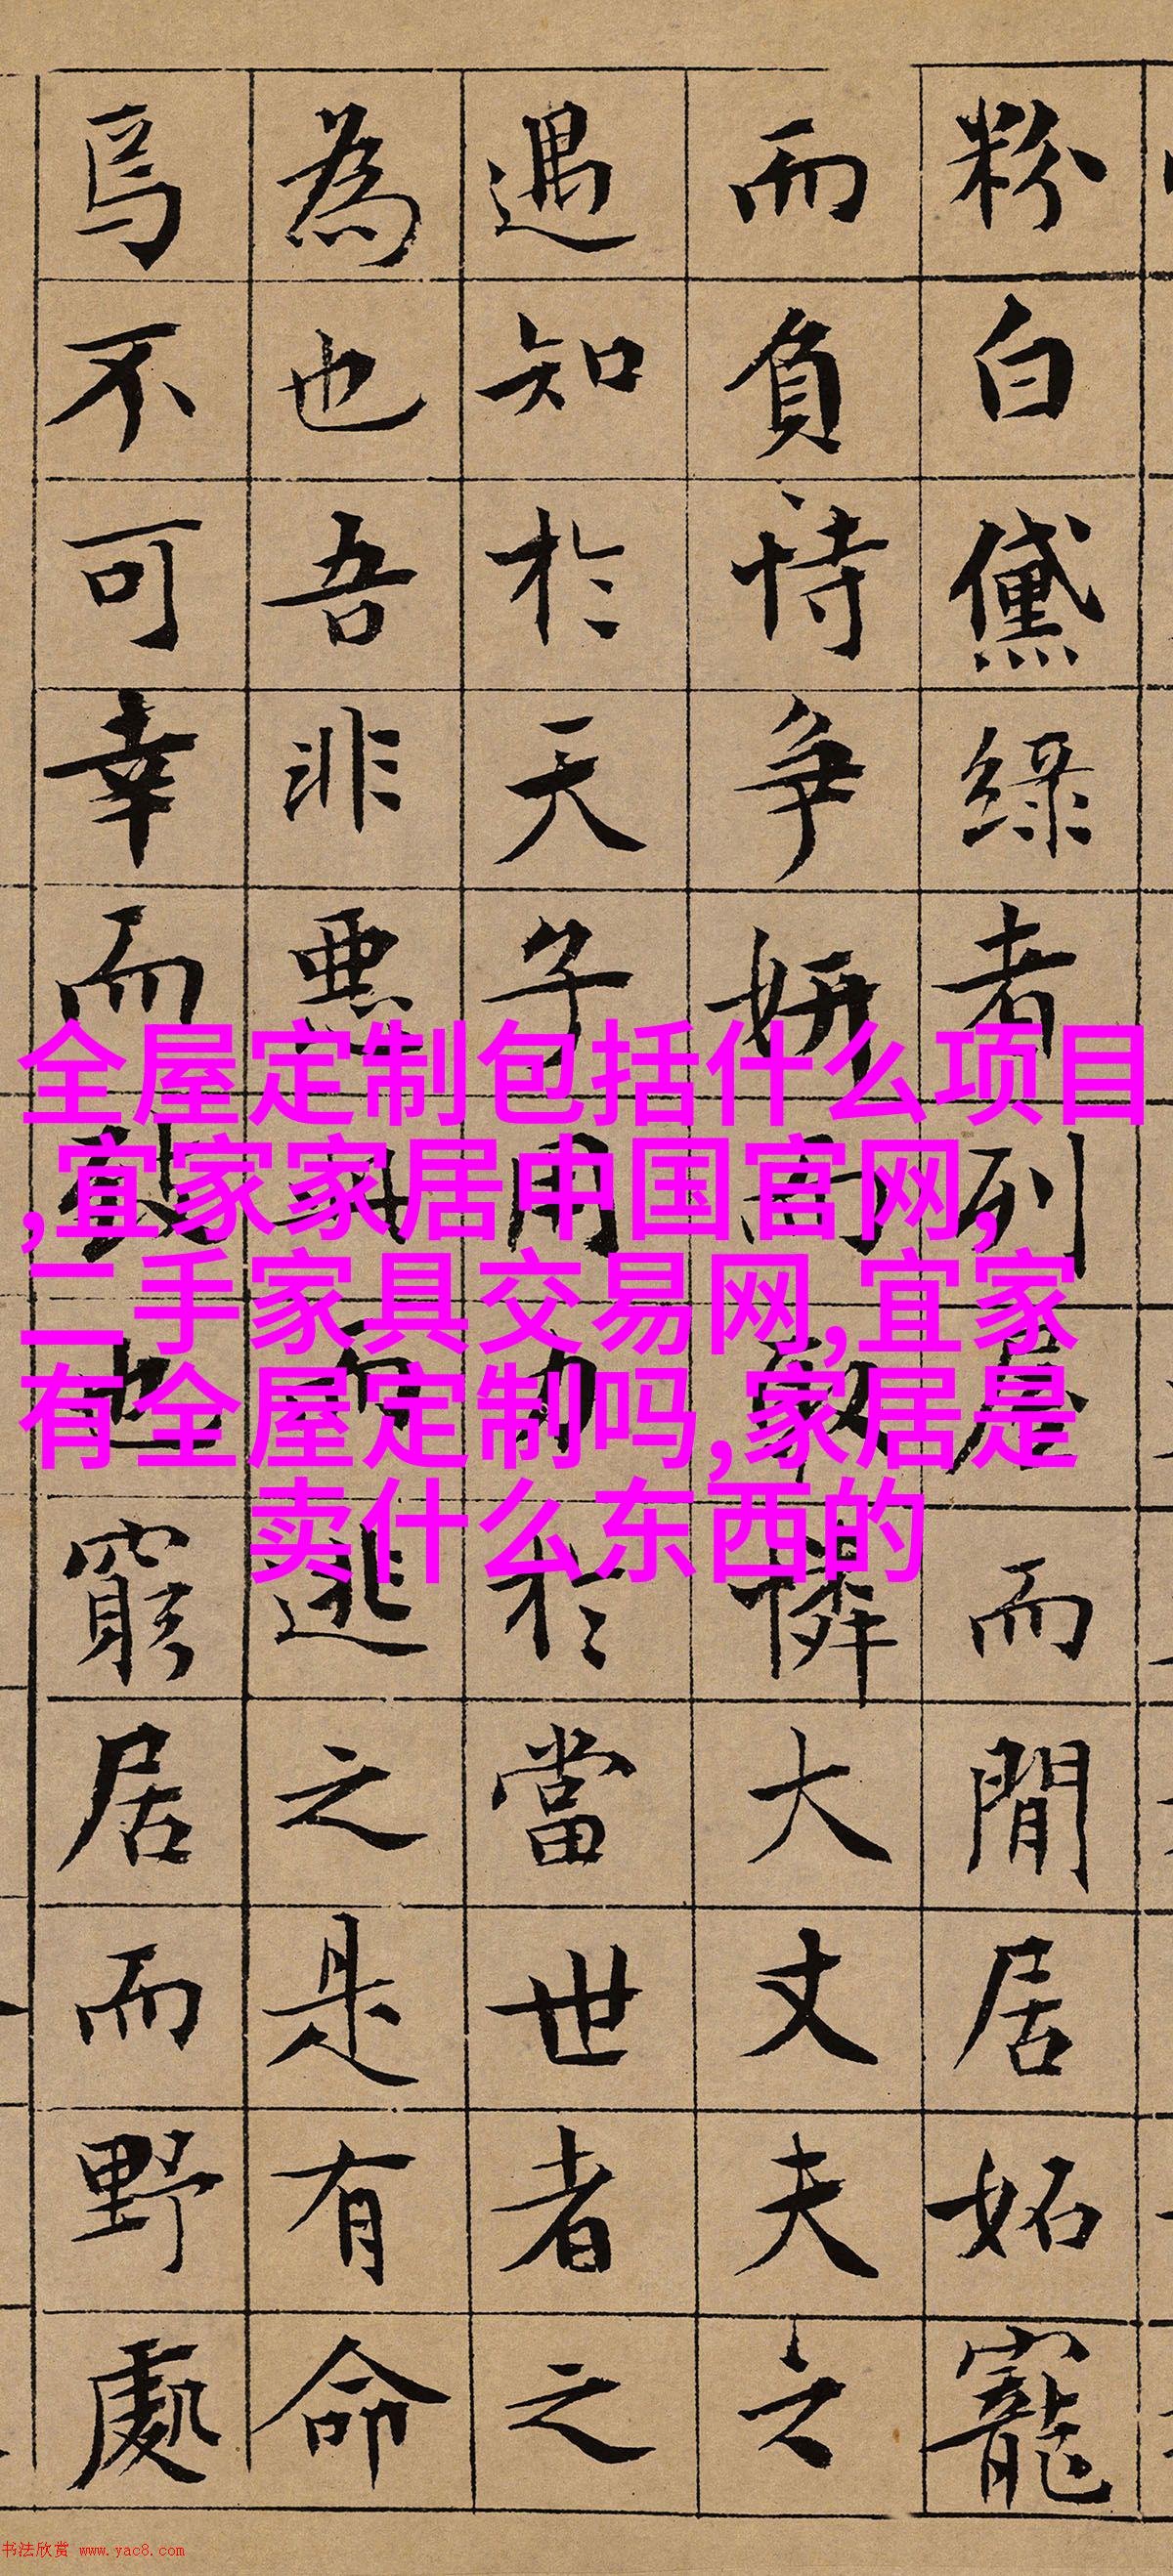 粉白黛綠者列屋而閒居妬寵
而負恃爭妍而取憐大丈夫之
遇知於天子用力於當世者之
為也吾非惡此而逃之是有命
焉不可幸而致也窮居而野處
全屋定制包括什么项目
,宜家家居中国官网,
二手家具交易网,宜家
有全屋定制吗,家居是
卖什么东西的
书法欣赏 www.yac8.com